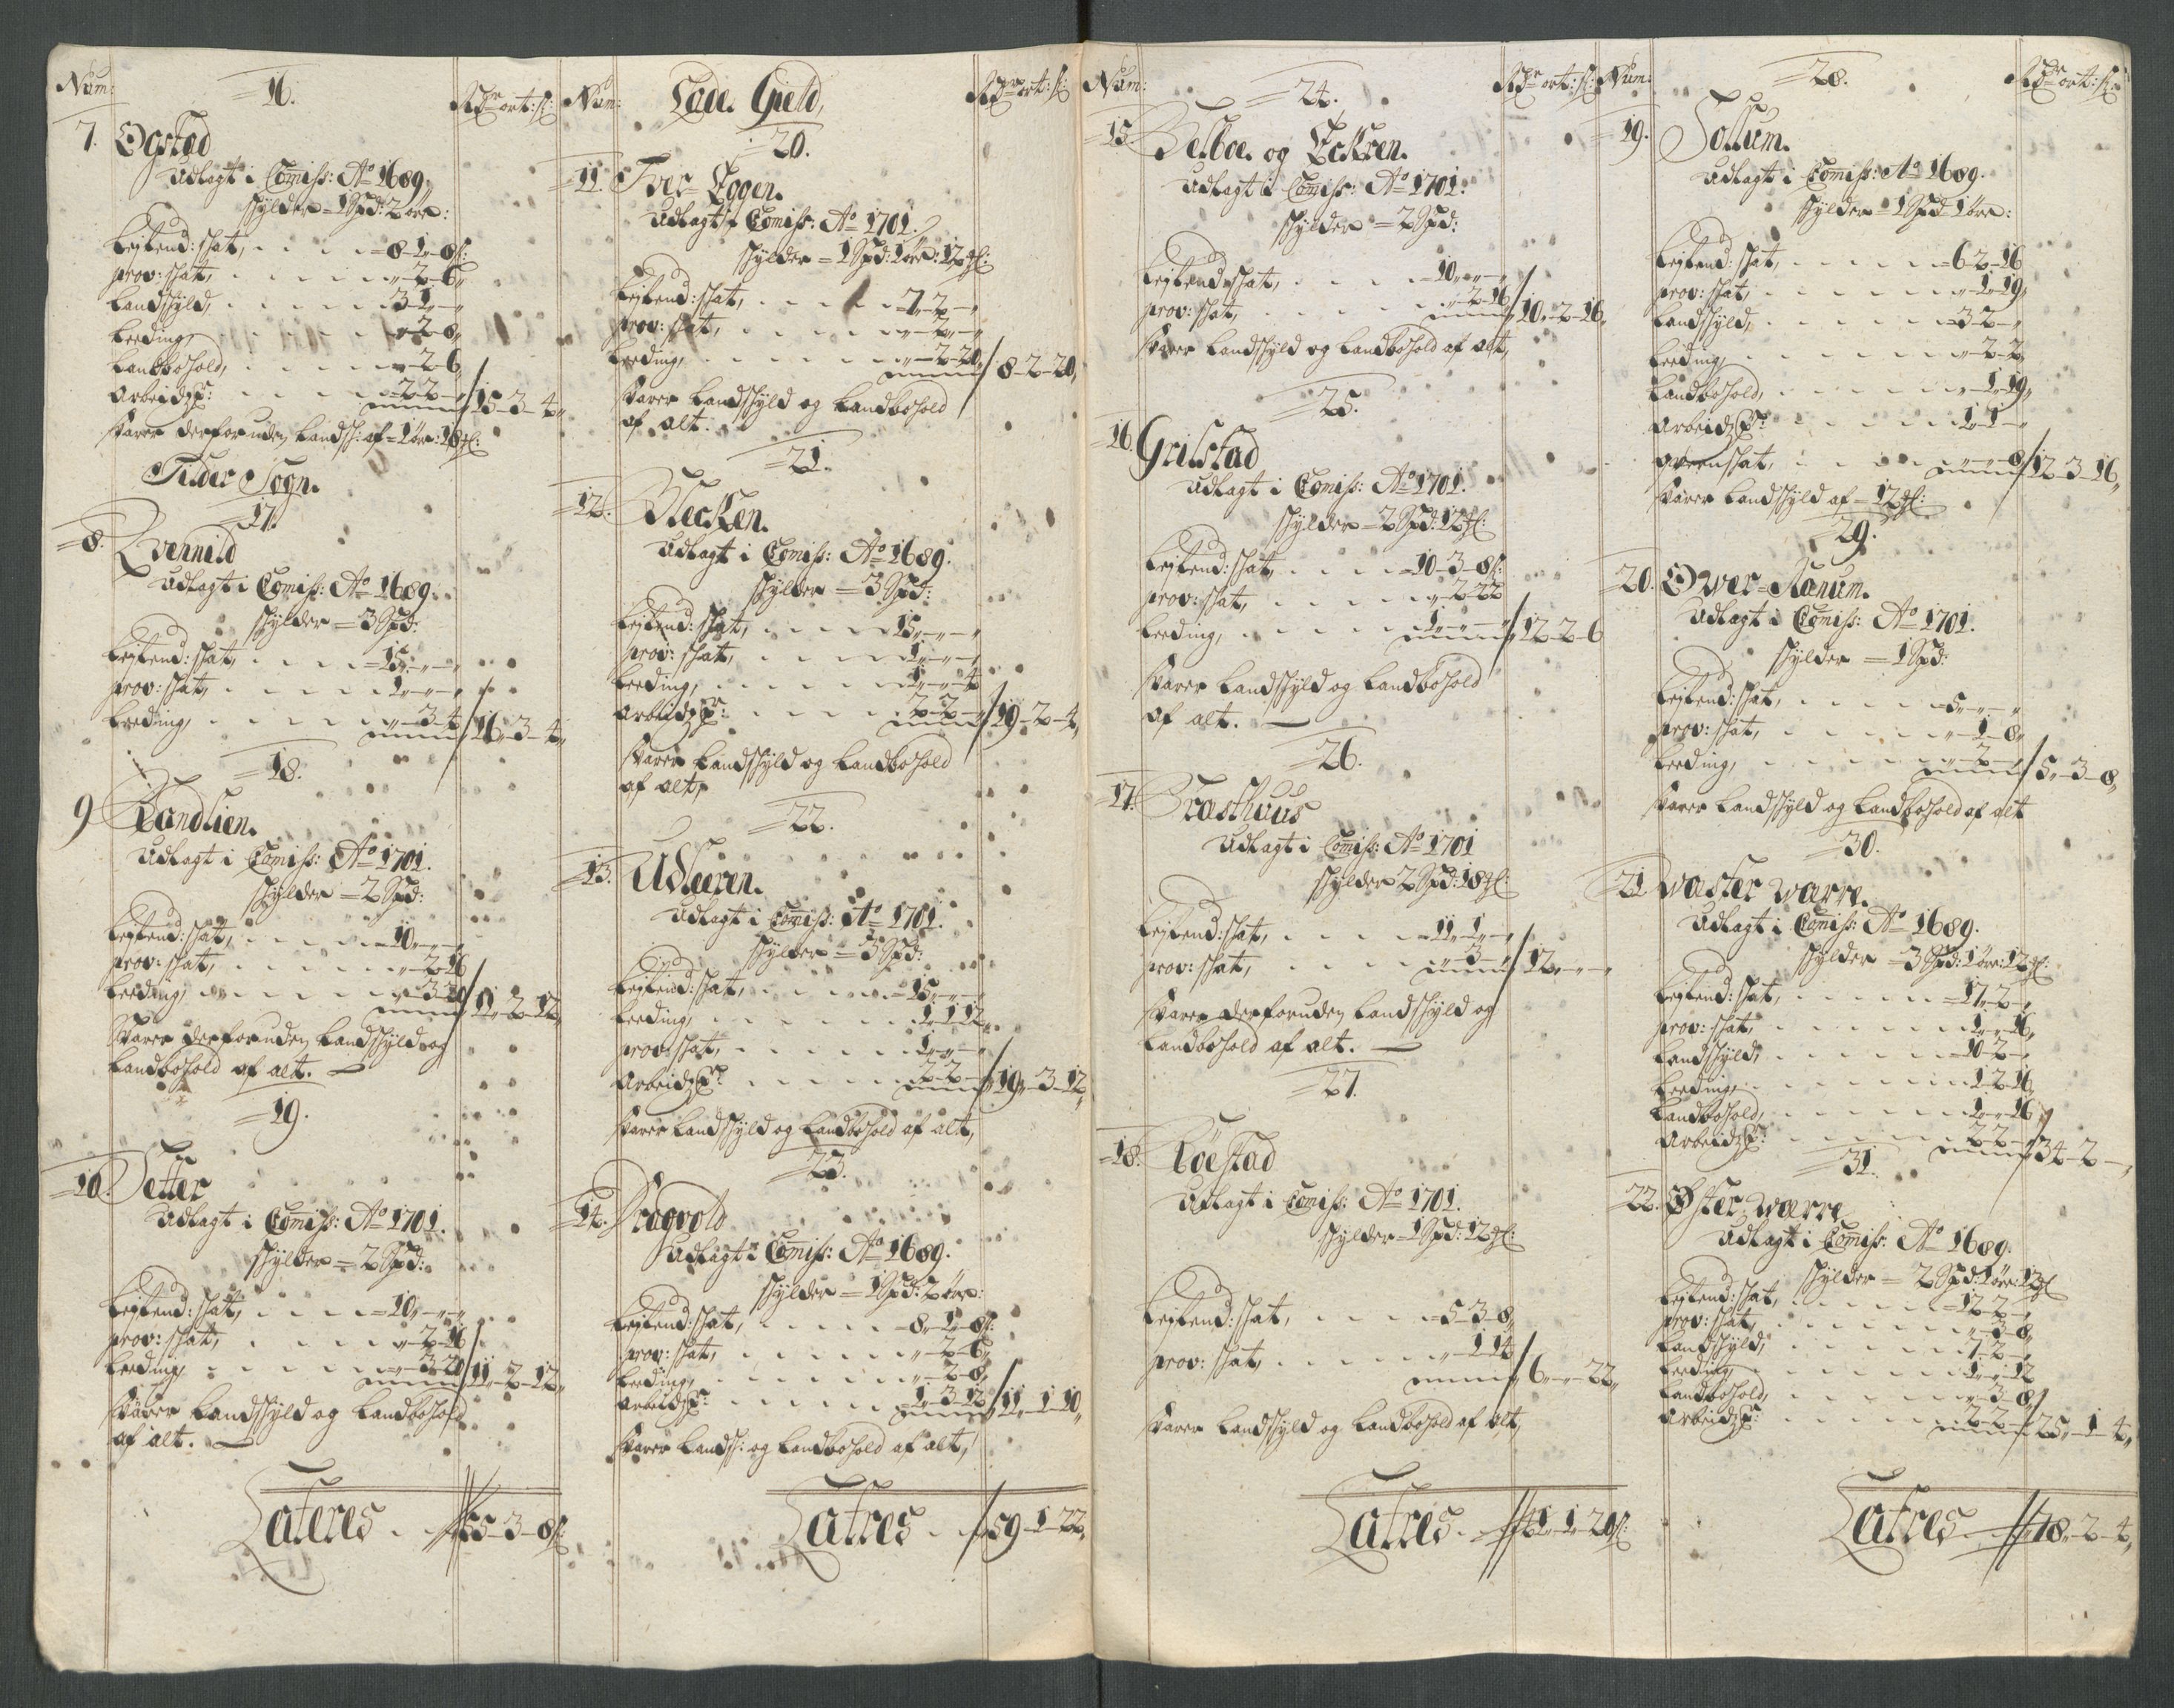 Num:
16.
Rdr ort: ß:
7. Ogstad
Udlagt i Comiss: Ao 1689,
schylder = 1 Spd: 2 øre:
Lejlend: schat, . . . . = 8- 1- 8 ß:
prov: schat, . . . . „- 2- 6„
Landschyld, . . . . 3- 1„-„
Leeding, . . . . „- 2- 8„
Landbohold, . . . . „- 2- 6„
Arbeidzp: . . . . = 2- 2-„ / 15- 3- 4„
svarer derforuden Landsch: af = 1 øre: 18 gl:
Tilder Sogn.
17.
8. Qvennild
Udlagt i Comiss: Ao 1689.
schylder = 3 Spd:
Lejlend: schat, . . . . = 15„-„-„
prov: schat, . . . . 1„-„-„
Leeding, . . . . „- 3- 4 / 16„- 3- 4„
18.
9 Randlien.
Udlagt i Comiss: Ao 1701.
schylder = 2 Spd:
Lejlend: schat, . . . . = 10„-„-„
prov: schat, . . . . „- 2- 16
Leeding, . . . . „- 3- 20 / 11„- 2- 12„
Svarer derforuden Landschyld og
Landbohold af alt.
19.
10. Setter
Udlagt i Comiss: Ao 1701.
schylder = 2 Spd:
Lejlend: schat, . . . . = 10„-„-„
prov: schat, . . . . „- 2- 16
Leeding, . . . . „- 3- 20 / 11„- 2- 12„
svarer Landschyld og Landbohold
af alt.
Lateres . . 55- 3- 8 ß:
Num:
Lade Gield,
Rdr ort: ß:
20.
11. Iver Eggen.
Udlagt i Comiss: Ao 1701.
schylder = 1 Spd: 1 øre: 12 gl:
Lejlend: schat, . . . . = 7„- 2-„
prov: schat, . . . . „- 2„-„
Leeding, . . . . „- 2- 20„ / 8- 2- 20„
svarer Landschyld og Landbohold
af alt.
21.
12. Blecken.
Udlagt i Comiss: Ao 1689.
schylder = 3 Spd:
Lejlend: schat, . . . . 15„-„-„
prov: schat, . . . . 1„-„-„
Leeding, . . . . 1„-„- 4
Arbeidzp: . . . . 2- 2-„ / 19- 2- 4„
svarer Landschyld og Landbohold
af alt,
22.
13. Udleeren.
Udlagt i Comiss: Ao 1701.
schylder = 3 Spd:
Lejlend: schat, . . . . = 15„-„-„
Leeding, . . . . 1„ 1 12„
prov: schat, . . . . 1„-„-„
Arbeidzp: . . . . 2- 2-„ / 19„- 3- 12„
svarer Landschyld og Landbohold af alt,
23.
14. Dragvold
Udlagt i Comiss: Ao 1689.
schylder = 1 Spd: 2 øre:
Lejlend: schat, . . . . = 8„- 1- 8 ß:
prov: schat, . . . . „- 2- 6„
Leeding, . . . . „- 2- 8„
Arbeidzp: . . . . = 1- 3- 12 / 11„- 1- 10„
svarer Landsch: og Landbohold af alt,
Latres . . 59- 1- 22„
Num:
24.
Rdr ort: ß:
15. Belboe. og Eckren.
Udlagt i Comiss: Ao 1701.
schylder = 2 Spd:
Lejlend: schat, . . . . = 10„-„-„
prov: schat, . . . . „- 2- 16 / 10„- 2- 16„
svarer Landschyld og Landbohold af alt,
25.
16. Grilstad
Udlagt i Comiss: Ao 1701.
schylder = 2 Spd: 12 gl:
Lejlend: schat, . . . . = 10- 3- 8 ß:
prov: schat, . . . . „- 2- 22
Leeding, . . . . 1„-„-„ / 12- 2- 6
svarer Landschyld og Landbohold
af alt.
26.
17. Prasthuus
Udlagt i Comiss: Ao 1701
schylder 2 Spd: 18 gl:
Lejlend: schat, . . . . = 11„ 1„-„
prov: schat, . . . . „- 3-„ / 12„-„-„
svarer derforuden Landschyld og
Landbohold af alt.
27.
18. Röestad
Udlagt i Comiss: Ao 1701.
schylder = 1 Spd: 12 gl:
Lejlend: schat, . . . . = 5- 3- 8„
prov: schat, . . . . „- 1 14 / 6„-„- 22„
svarer Landschyld og Landbohold af alt,
Latres . . 41„ 1„ 20 ß:
Num:
28.
Rdr ort: ß:
19. Sollum.
Udlagt i Comiss: Ao 1689.
schylder = 1 Spd 1 øre:
Lejlend: schat, . . . . = 6- 2- 16
prov: schat, . . . . „- 1- 19„
Landschyld, . . . . = 3- 2-„
Leeding, . . . . „- 2- 2„
Landbohold, . . . . „- 1- 19„
Arbeidzp: . . . . 1- 1-„
Øreenschat, . . . . „-„- 8 / 12- 3- 16„
svarer Landschyld af = 12 gl:
29.
20. Over = Ranum.
Udlagt i Comiss: Ao 1701.
schylder = 1 Spd:
Lejlend: schat, . . . . = 5„-„-„
prov: schat, . . . . „- 1- 8„
Leeding, . . . . „- 2-„ / 5„- 3- 8„
svarer Landschyld og Landbohold af alt
30.
21 Waster warre.
Udlagt i Comiss: Ao 1689.
schylder = 3 Spd: 1 øre: 12 gl:
Lejlend: schat, . . . . = 17„- 2-„
prov: schat, . . . . 1„-„ 16„
Landschyld, . . . . = 10- 2-„
Leeding, . . . . 1- 2- 16„
Landbohold, . . . . 1„-„ 16
Arbeidzp: . . . . 2- 2-„ / 34- 2-„
31.
22. Øster warre
Udlagt i Comiss: Ao 1689.
schylder = 2 Spd: 1 øre: 12 gl
Lejlend: schat, . . . . = 12- 2-„
prov: schat, . . . . „- 3- 8„
Landschyld, . . . . 7- 2-„
Leeding, . . . . 1„-„ 12
Landbohold, . . . . „- 3- 8
Arbeidzp: . . . . 2- 2-„ / 25„- 1- 4„
Latres . . 78„- 2- 4„